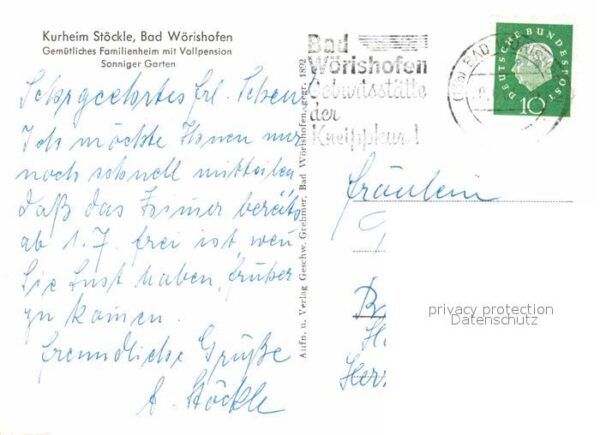 Kurheim Stöckle, Bad Wörishofen
Gemütliches Familienheim mit Vollpension
Sonniger Garten
Sehr geehrtes Frl.
Ich möchte Ihnen nur
noch schnell mitteilen
daß das Zimmer bereits
ab 1.7. frei ist, wenn
Sie Lust haben, früher
zu kommen.
freundliche Grüße
A. Stöckle
Aufn. u. Verlag Geschw. Grebmer, Bad Wörishofen, gegr. 1892
Bad
Wörishofen
Geburtsstätte
der
Kneippkur!
BAD
DEUTSCHE BUNDESPOST
10
Fräulein
privacy protection
Datenschutz